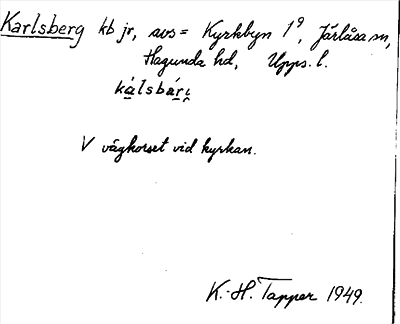 Karlsberg kb jr, avs = Kyrkbyn 1⁹, Järlåsa sn,
Hagunda hd, Upps. l.
V vägkorset vid kyrkan.
K.-H. Tapper 1949.